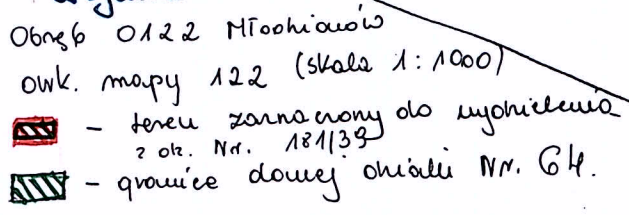 Obręb 0122 Młochionów
ark. mapy 122 (skala 1:1000)
- teren zaznaczony do wydzielenia
z dz. Nr. 181/39
- granice dawnej działki Nr. 64.